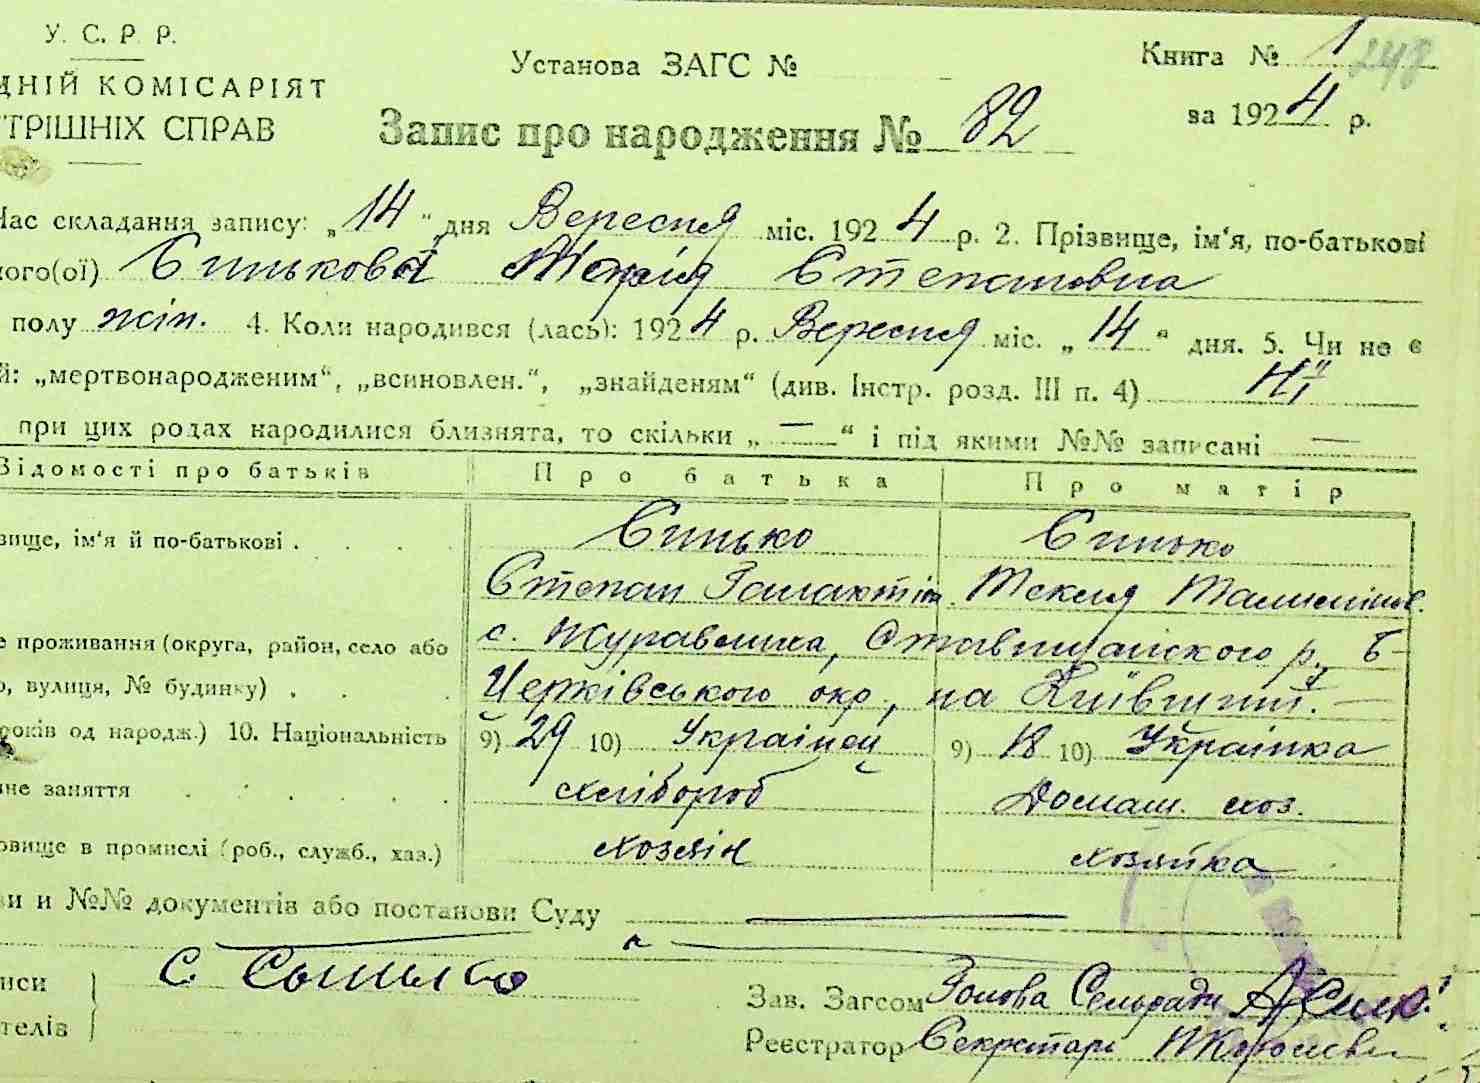 У. С. Р. Р.
ДНІЙ КОМІСАРІЯТ
ТРІШНІХ СПРАВ
Установа ЗАГС №
Книга № 1 248
за 1924 р.
Запис про народження № 82
Час складання запису: „14“ дня Вересня міс. 1924 р. 2. Прізвище, ім'я, по-батькові
ного(ої) Синькова Марія Степановна
полу жін. 4. Коли народився (лась): 1924 р. Вересня міс. „14“ дня. 5. Чи не є
й: „мертвонародженим“, „всиновлен.“, „знайденям“ (див. Інстр. розд. III п. 4) Ні
при цих родах народилися близнята, то скільки „—“ і під якими №№ записані —
Відомості про батьків Про батька Про матір
вище, ім'я й по-батькові . Синько Синько
Степан Галактіон. Текля
е проживання (округа, район, село або с. Журавлиха, Ставищанського р., Б-
о, вулиця, № будинку) . Церківського окр., на Київщині. —
років од народж.) 10. Національність 9) 29 10) Українец 9) 18 10) Українка
не заняття хлібороб Домаш. хоз.
овище в промислі (роб., служб., хаз.) хозяін хозяйка
ви и №№ документів або постанови Суду —
иси С. Синько
телів
Зав. Загсом Голова Сельради
Реєстратор Секретарь